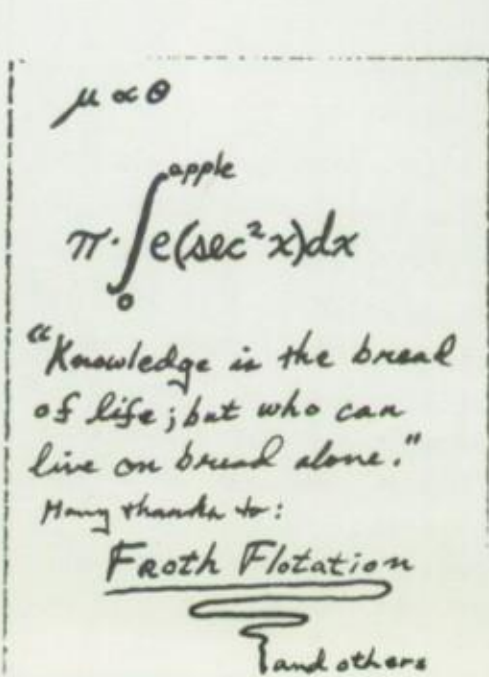 μ ∝ θ
π·∫₀^apple e(sec²x)dx
"Knowledge is the bread
of life; but who can
live on bread alone."
Many thanks to:
Froth Flotation
and others